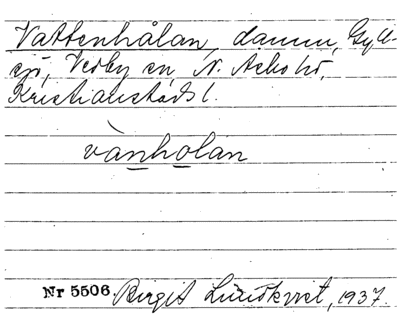 Vattenhålan, damm, Gyll-
sjö, Verby sn, N. Åsbo hd,
Kristianstads l.
vànhọlan
Nr 5506. Birgit Lundkvist, 1937.